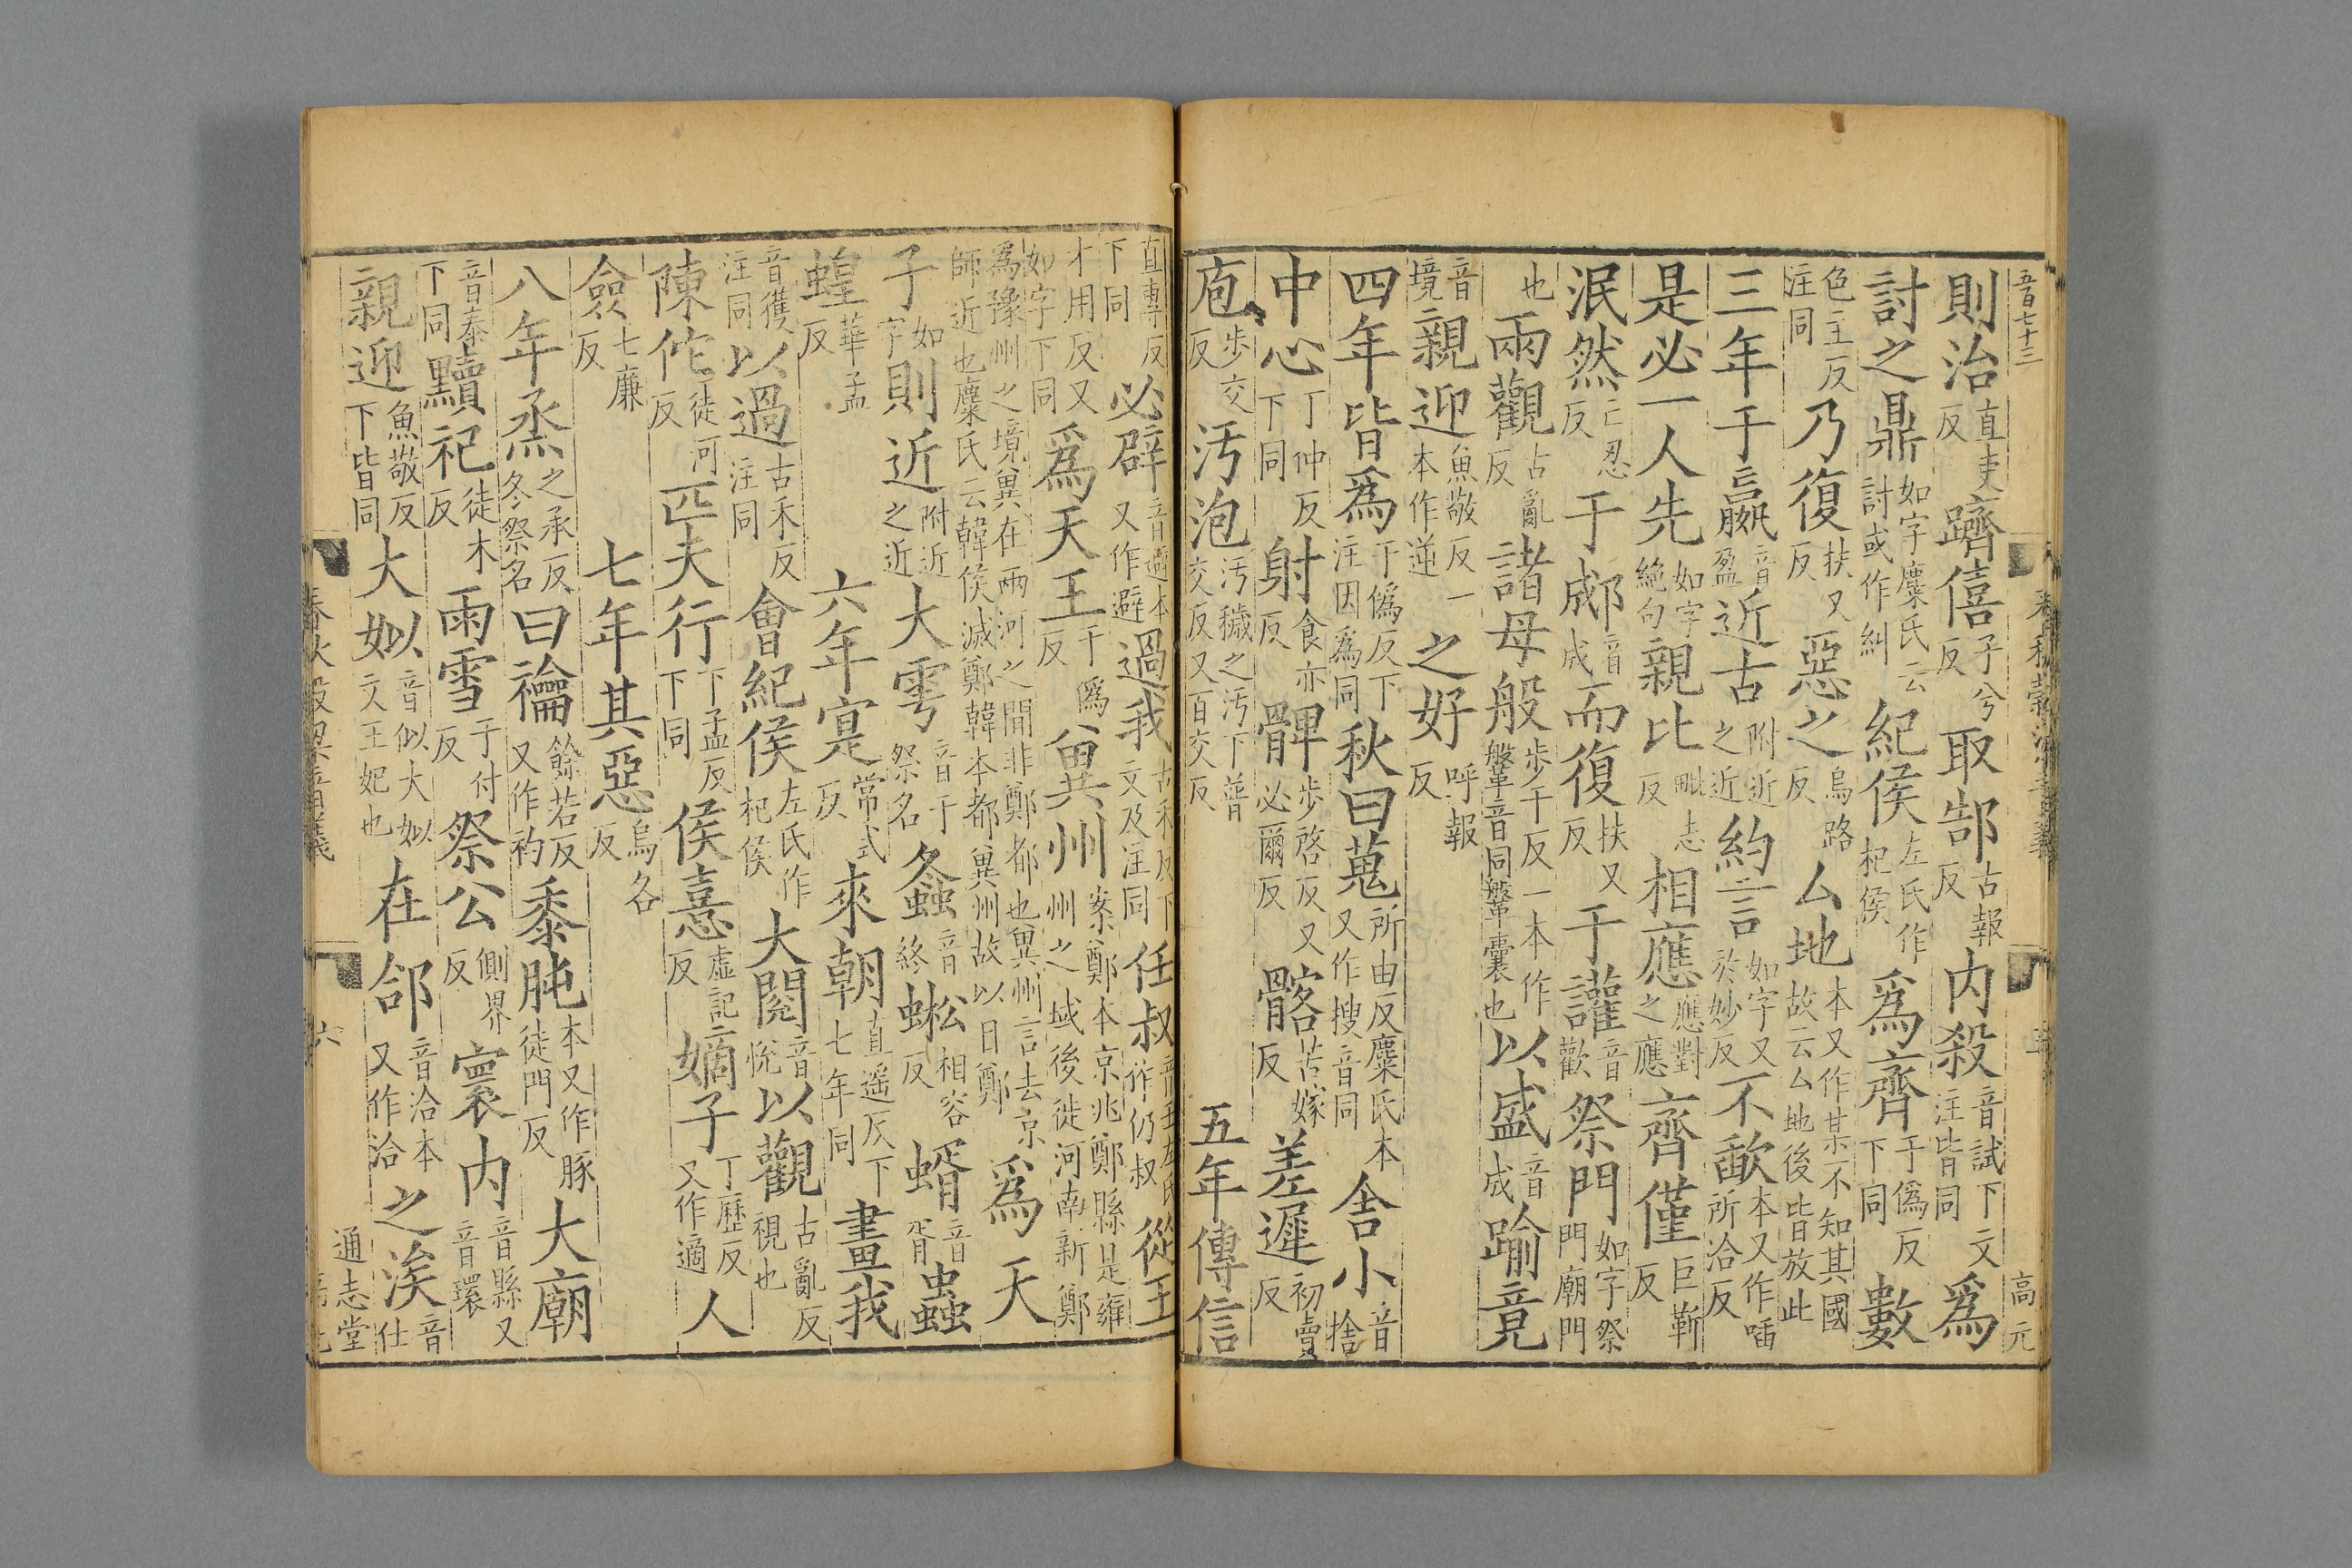 五百七十三
高元
則治直吏反躋僖子兮反取郜古報反内殺音試下文注皆同爲
討之鼎如字麋氏云討或作糾紀侯左氏作杞侯爲齊于僞反下同數
色主反注同乃復扶又反惡之烏路反厶地本又作某不知其國故云厶地後皆放此
三年于嬴音盈近古附近之近約言如字又於妙反不歃本又作喢所洽反
是必一人先如字絶句親比毗志反相應應對之應齊僅巨靳反
泯然亡忍反于郕音成而復扶又反于讙音歡祭門如字祭門廟門
也兩觀古亂反諸母般步干反一本作鞶音同鞶囊也以盛音成踰竟
音境親迎魚敬反一本作逆之好呼報反
四年皆爲于僞反下注因爲同秋曰蒐所由反麋氏本又作搜音同舍小音捨
中心丁仲反下同射食亦反髀步啓反又必爾反髂苦嫁反差遲初賣反
庖步交反汚泡汚穢之汚下普交反又百交反五年傳信
直專反下同必辟音避本又作避過我古禾反下文及注同任叔音壬左氏作仍叔從王
才用反又如字下同爲天王于僞反兾州案鄭本京兆鄭縣是雍州之域後徙河南新鄭
爲豫州之境兾在兩河之間非鄭都也兾州言去京師近也麋氏云韓侯滅鄭韓本都兾州故以目鄭爲天
子如字則近附近之近大雩音于祭名螽音終蜙相容反蝑音胥蟲
蝗華孟反六年寔常式反來朝直遥反下七年同畫我
音獲注同以過古禾反注同會紀侯左氏作杞侯大閱音悅以觀古亂反視也
陳佗徒河反匹夫行下孟反下同侯憙虛記反嫡子丁歷反又作適人
僉七廉反七年其惡烏各反
八年烝之承反冬祭名曰禴餘若反又作礿黍肫本又作豚徒門反大廟
音泰下同黷祀徒木反雨雪于付反祭公側界反寰内音縣又音環
親迎魚敬反下皆同大姒音似大姒文王妃也在郃音洽本又作洽之涘音仕
六
通志堂